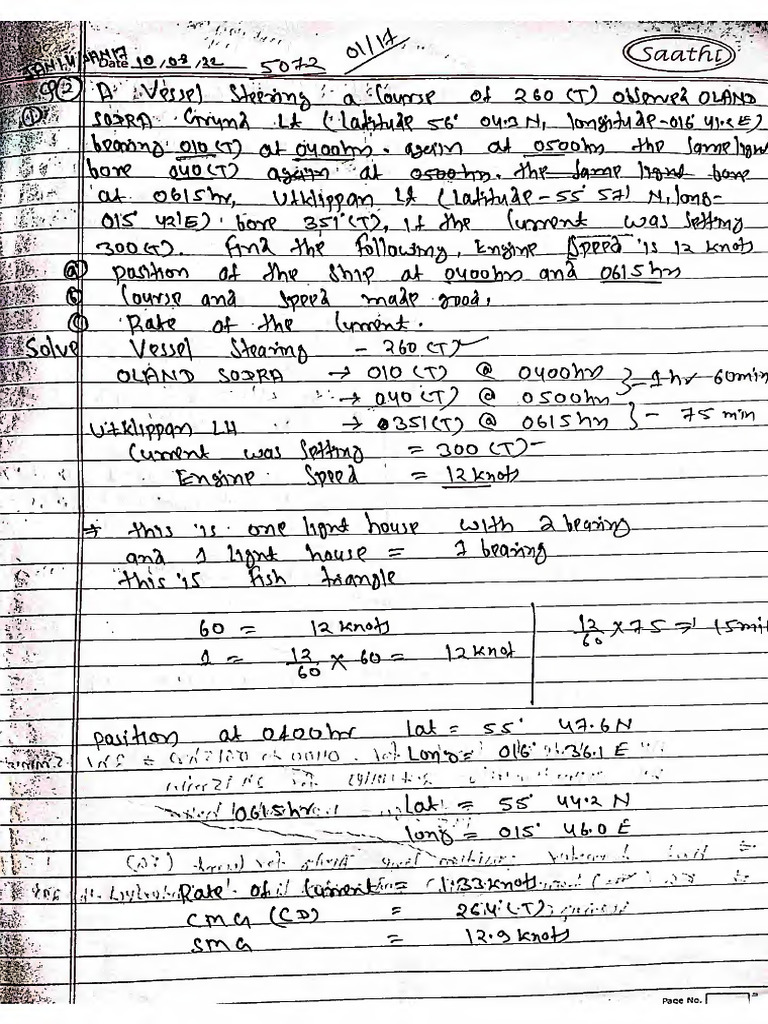 01/17
Saathi
Date 10/08/22 5072
Q2 A Vessel Steering a Course of 260 (T) observed OLAND
① SODRA Grund Lt (latitude 56° 04.2 N, longitude-016 41.2 E)
bearing 010 (T) at 0400hrs. again at 0500hrs the same light
bore 040 (T) again at 0500hrs. the same light bore
at 0615hr, Utklippan Lt (latitude - 55° 57' N, long-
015° 42'E) bore 351°(T), if the Current was Setting
300 (T). Find the following, Engine Speed is 12 knots
ⓐ position of the ship at 0400hrs and 0615hr
ⓑ Course and speed made good.
ⓒ Rate of the Current.
Solve Vessel Stearing - 260 (T)
OLAND SODRA → 010 (T) @ 0400hrs } = 1 hr 60min
→ 040 (T) @ 0500hrs
Utklippan LH → 351(T) @ 0615hr } - 75 min
Current was Setting = 300 (T)
Engine Speed = 12 knots
⇒ this is one light house with 2 bearing
and 1 light house = 1 bearing
this is fish triangle
60 = 12 knots
1 = 12/60 × 60 = 12 knot
12/60 × 75 => 15mi
position at 0400hr lat = 55° 47.6 N
Long = 016° 36.1 E
0615hr Lat = 55° 44.2 N
long = 015° 46.0 E
Rate of Current = 1.33 knot
CMG (CD) = 264 (T)
SMG = 12.9 knots
Page No.